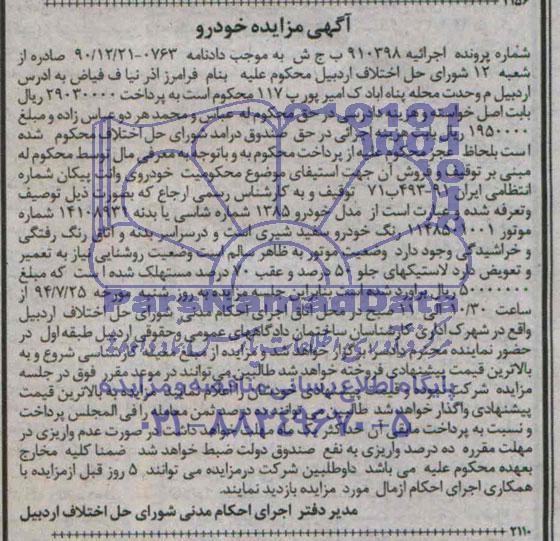 ۲۱۵۶
آگهی مزایده خودرو
شماره پرونده اجرائیه ۹۱۰۳۹۸ ب ج ش به موجب دادنامه ۰۷۶۳-۹۰/۱۲/۲۱ صادره از
شعبه ۱۲ شورای حل اختلاف اردبیل محکوم علیه بنام فرامرز آذر نیا ف فیاض به ادرس
اردبیل م وحدت محله پناه اباد ک امیر پور پ ۱۱۷ محکوم است به پرداخت ۲۹۰۳۰۰۰۰ ریال
بابت اصل خواسته و هزینه دادرسی در حق محکوم له عباس و محمد هر دو عباس زاده و مبلغ
۱۹۵۰۰۰۰ ریال بابت هزینه اجرائی در حق صندوق درآمد شورای حل اختلاف محکوم شده
است بلحاظ عجز محکوم علیه از پرداخت محکوم به و باتوجه به معرفی مال توسط محکوم له
مبنی بر توقیف و فروش آن جهت استیفای موضوع محکومیت خودروی وانت پیکان شماره
انتظامی ایران ۹۱-۴۹۳ب۷۱ توقیف و به کارشناس رسمی ارجاع که بصورت ذیل توصیف
وتعرفه شده و عبارت است از مدل خودرو ۱۳۸۵ شماره شاسی یا بدنه شماره
موتور رنگ خودرو سفید شیری است و درسراسر بدنه و اتاق رنگ رفتگی
و خراشیدگی وجود دارد وضعیت موتور به ظاهر سالم است وضعیت روشنایی نیاز به تعمیر
و تعویض دارد لاستیکهای جلو ۵۰ درصد و عقب ۷۰ درصد مستهلک شده است که مبلغ
ریال برآورد شده است بنابراین جلسه مزایده به روز شنبه مورخه ۹۴/۷/۲۵ از
ساعت ۱۰/۳۰ الی ۱۱ صبح در محل اتاق اجرای احکام مدنی شورای حل اختلاف اردبیل
واقع در شهرک اداری کارشناسان ساختمان دادگاههای عمومی و حقوقی اردبیل طبقه اول در
حضور نماینده محترم دادستان برگزار خواهد شد و مزایده از مبلغ پایه کارشناسی شروع و به
بالاترین قیمت پیشنهادی فروخته خواهد شد طالبین می توانند در موعد مقرر فوق در جلسه
مزایده شرکت نموده و قیمت پیشنهادی خودشان را اعلام نمایند مزایده به بالاترین قیمت
پیشنهادی واگذار خواهد شد طالبین می توانند ده درصد ثمن معامله را فی المجلس پرداخت
و نسبت به پرداخت مابقی آن حداکثر یک ماه مهلت خواهد داشت در صورت عدم واریزی در
مهلت مقرره ده درصد واریزی به نفع صندوق دولت ضبط خواهد شد ضمنا کلیه مخارج
بعهده محکوم علیه می باشد داوطلبین شرکت درمزایده می توانند ۵ روز قبل ازمزایده با
همکاری اجرای احکام ازمال مورد مزایده بازدید نمایند.
مدیر دفتر اجرای احکام مدنی شورای حل اختلاف اردبیل
۲۱۱۰
ParsNamadData
پایگاه اطلاع رسانی مناقصه و مزایده
۰۲۱-۸۸۳۴۹۶۷۰-۵